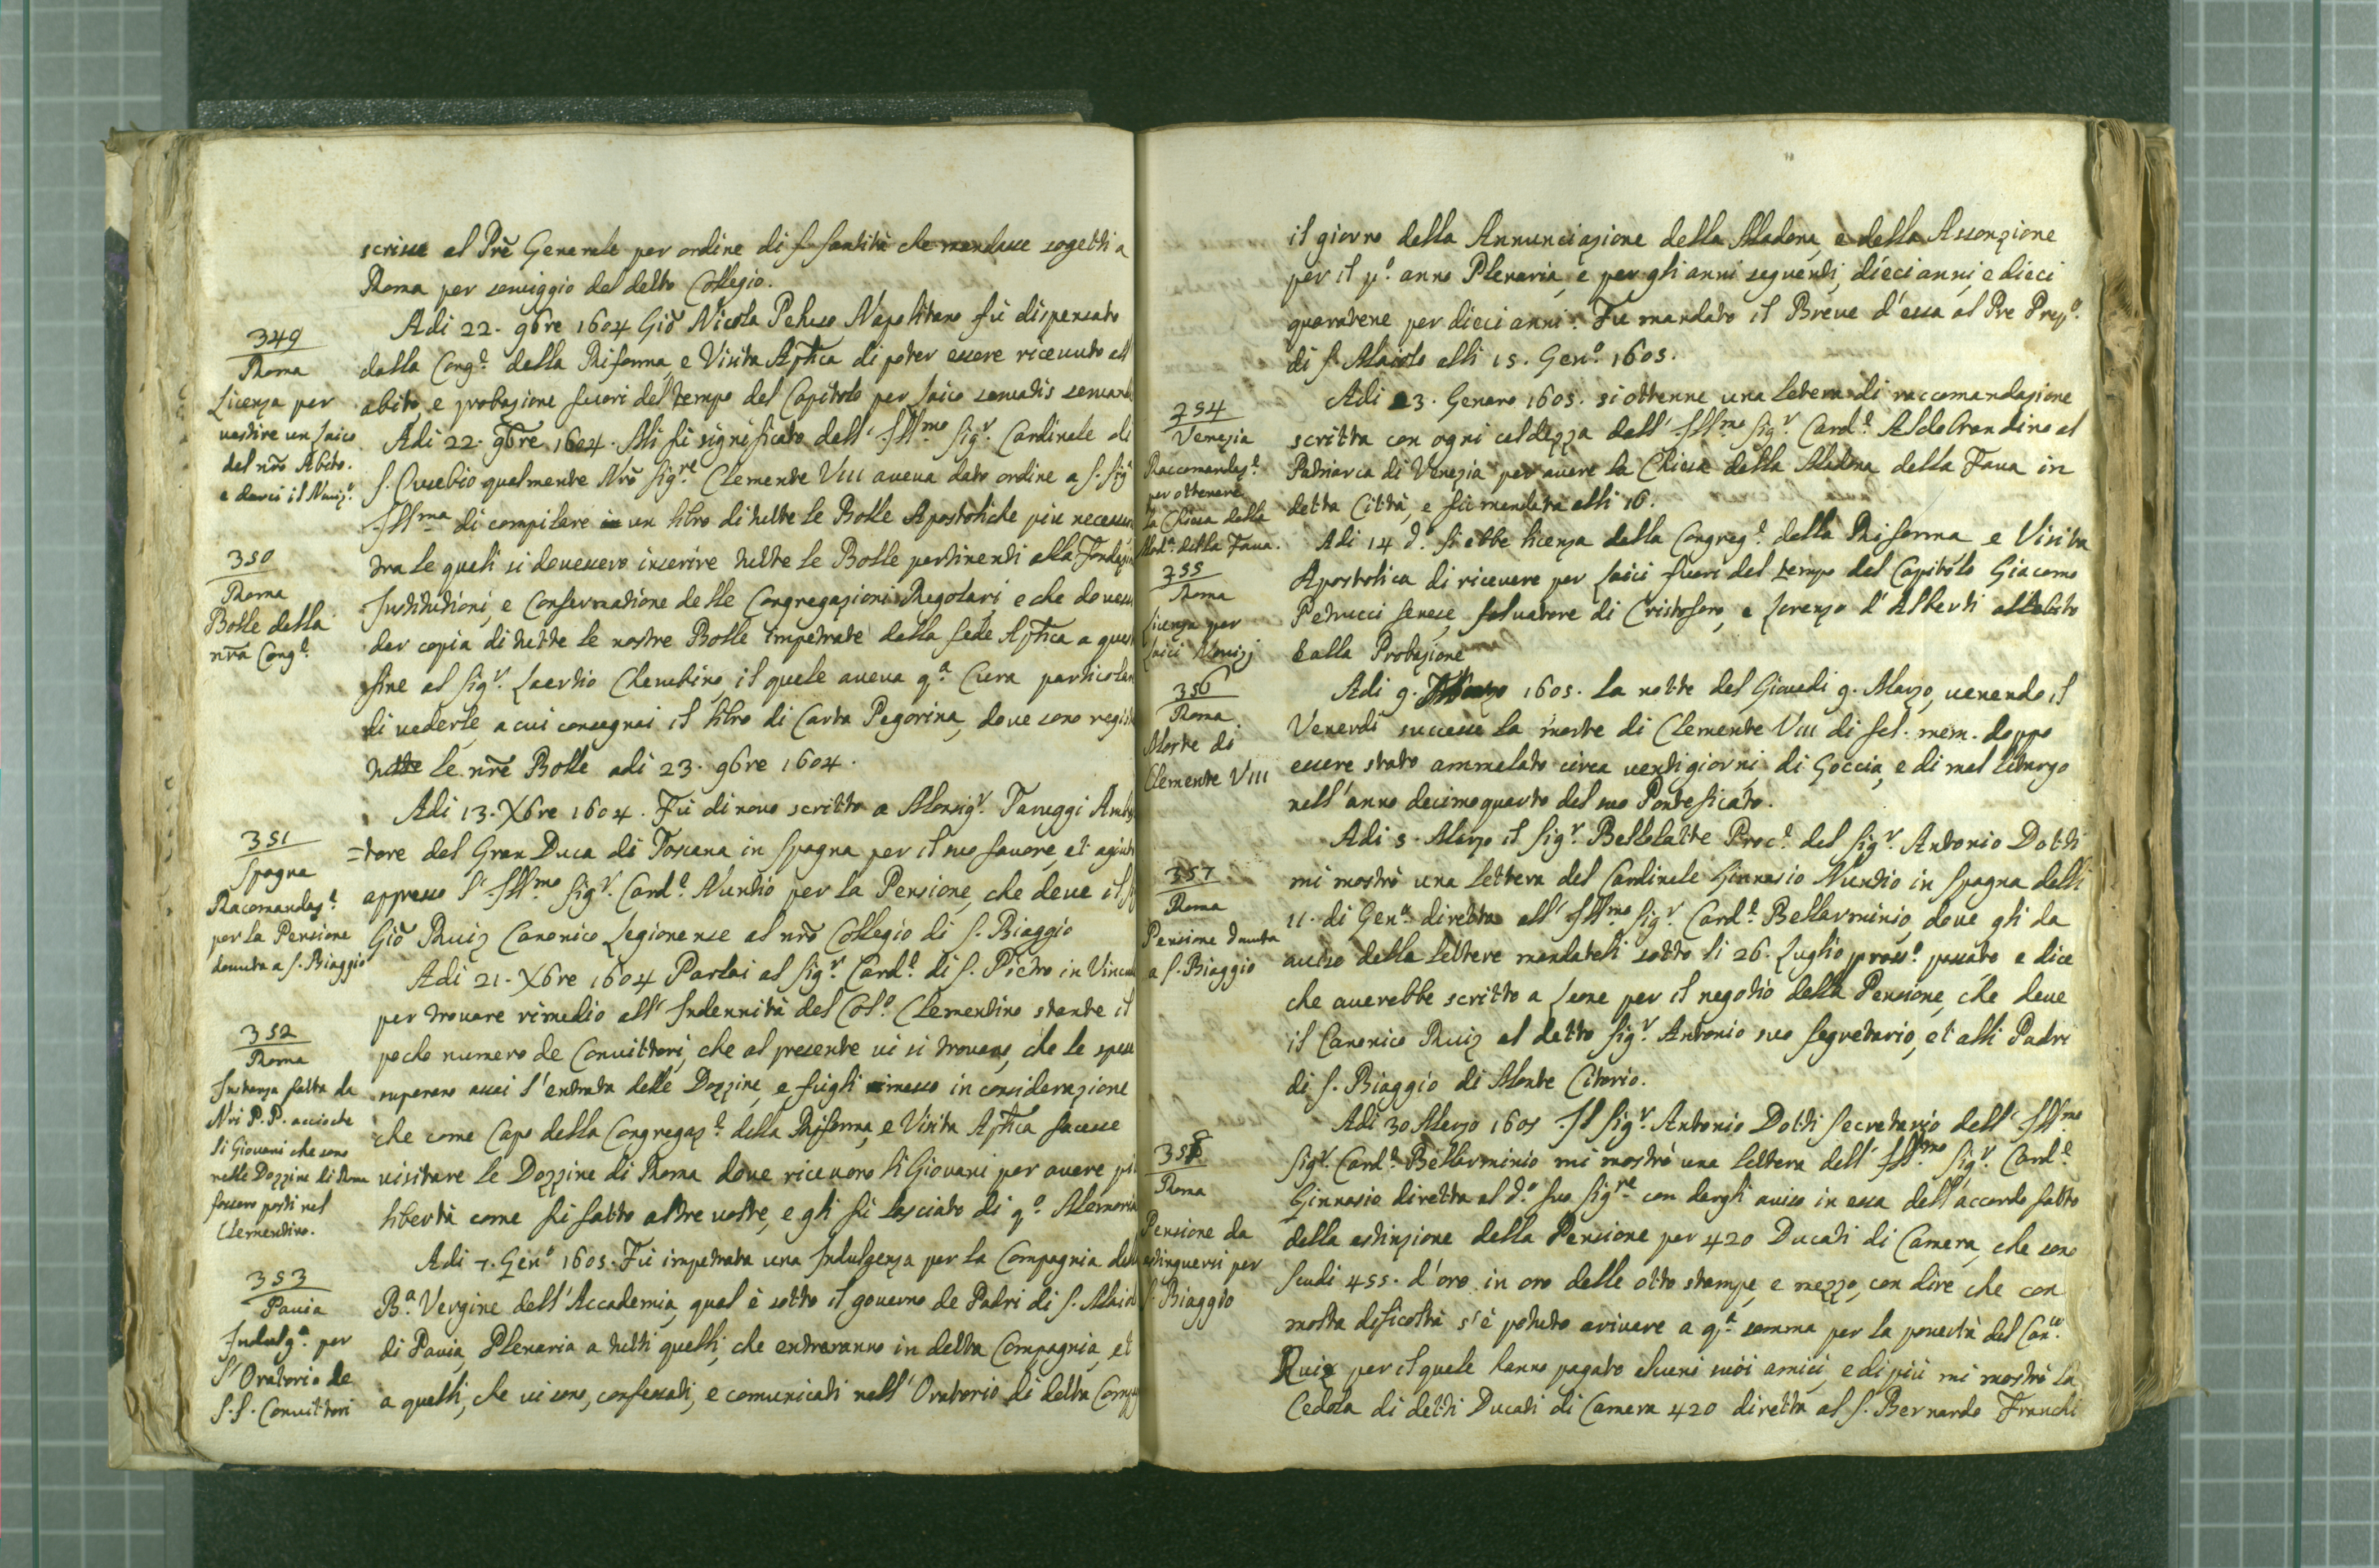 scrisse al Prē Generale per ordine di S. Santità che mandasse sogetti a
Roma per serviggio del detto Collegio.
349
Roma
Licenza per
vestire un laico
del nrō Abito.
e darci il Noviz.º
Adi 22. 9bre 1604 Giō Nicola Peluso Napolitano fù dispensato
dalla Cong.e della Riforma, e Visita Apt̄ica di poter essere ricevuto all
abito e probazione fuori del tempo del Capitolo per laico servatis
350
Roma
Bolle della
nr̄a Cong.e
Adi 22. 9bre 1604. Mi fù significato dall' Ill.mo Sig.r Cardinale di
S. Eusebio qualmente Nrō Sig.re Clemente VIII aveva dato ordine a S. Sig
Ill.ma di compilare un libro di tutte le Bolle Apostoliche più
tra le quali si dovessero inserire tutte le Bolle pertinenti alla
Institutioni, e Conservatione delle Congregazioni Regolari, e che
dar copia di tutte le nostre Bolle impetrate dalla Sede Apt̄ica a
fine al Sig.r Laertio Cherubino, il quale aveva q.a Cura
di vederle, a cui consegnai il libro di Carta Pegorina, dove sono
tutte le nrē Bolle adi 23. 9bre 1604.
351
Spagna
Racomandaz.e
per la Pensione
dovuta a S. Biaggio
Adi 13. Xbre 1604. Fù di novo scritto a Monsig.r Taruggi
=tore del Gran Duca di Toscana in Spagna per il suo favore, et
appresso l' Ill.mo Sig.r Card.e Nuntio per la Pensione, che deve il
Giō Ruiz Canonico Legionense al nrō Collegio di S. Biaggio
352
Roma
Instanza fatta da
Nri P.P. acciochè
li Giovani che sono
nelle Dozzine di Roma
fossero posti nel
Clementino.
Adi 21. Xbre 1604 Parlai al Sig.r Card.e di S. Pietro in
per trovare rimedio all' Indennità del Col.o Clementino stante il
pocho numero de Convittori, che al presente vi si trovano, che le spese
superano assai l'entrata delle Dozzine, e fugli messo in considerazione
che come Capo della Congregaz.e della Riforma, e Visita Apt̄ica facesse
visitare le Dozzine di Roma dove ricevono li Giovani per avere
libertà come fù fatto altre volte, e gli fù lasciato di q.o
353
Pavia
Indulg.a per
l'Oratorio de
S.S. Convittori
Adi 7. Gen.o 1605. Fù impetrata una Indulgenza per la Compagnia
B.a Vergine dell'Accademia, qual è sotto il governo de Padri di S.
di Pavia, Plenaria a tutti quelli, che entraranno in detta Compagnia, et
a quelli, che vi sono, confessati, e comunicati nell'Oratorio di detta
il giorno della Annunciazione della Madona, e della Assonzione
per il p.o anno Plenaria, e per gli anni seguenti, dieci anni, e dieci
quaratene per dieci anni. Fu mandato il Breve d'essa al Pre Prep.o
di S. Maiolo alli 15. Gen.o 1605.
354
Venezia
Raccomandaz.e
per ottenere
la Chiesa della
Mad.a della Fava.
Adi 23. Genaro 1605. si ottenne una letera di raccomandazione
scritta con ogni caldezza dall' Ill.mo Sig.r Card.e Aldobrandino al
Patriarca di Venezia per avere la Chiesa della Madona della Fava in
detta Città, e fù mandata alli 16.
355
Roma
Licenza per
Laici Novizj
Adi 14 d.o si ebbe licenza dalla Congreg.e della Riforma e Visita
Apostolica di ricevere per Laici fuori del tempo del Capitolo Giacomo
Petrucci Senese, Salvatore di Cristoforo, e Lorenzo d'Alberti all'abito
e alla Probazione
356
Roma.
Morte di
Clemente VIII
Adi 9. Marzo 1605. La notte del Giovedi 9. Marzo, venendo il
Venerdi successe la morte di Clemente VIII di fel. mem. doppo
essere stato ammalato circa venti giorni, di Goccia, e di mal litargo
nell'anno decimoquarto del suo Pontificato.
357
Roma
Pensione dovuta
a S. Biaggio
Adi 5. Marzo il Sig.r Bellolatte Proc.e del Sig.r Antonio Dotti
mi mostrò una lettera del Cardinale Ginnasio Nuntio in Spagna delli
11. di Gen.o diretta all' Ill.mo Sig.r Card.e Bellarminio, dove gli da
aviso della lettere mandateli sotto li 26. Luglio pross.o passato e dice
che averebbe scritto a Leone per il negotio della Pensione, che deve
il Canonico Ruiz al detto Sig.r Antonio suo Segretario, et alli Padri
di S. Biaggio di Monte Citorio.
358
Roma
Pensione da
estinguersi per
S. Biaggio
Adi 30 Marzo 1605 Il Sig.r Antonio Dotti Secretario dell' Ill.mo
Sig.r Card.e Bellarminio mi mostrò una lettera dell' Ill.mo Sig.r Card.e
Ginnasio diretta al d.o suo Sig.re con dargli aviso in essa dell'accordo fatto
della estinzione della Pensione per 420 Ducati di Camera, che sono
Scudi 455. d'oro in oro delle otto stampe, e mezzo, con dire che con
molta dificoltà s'è potuto arivare a q.a somma per la povertà del Can.co
Ruiz per il quale hanno pagato alcuni suoi amici, e di più mi mostrò la
Cedola di detti Ducati di Camera 420 diretta al S. Bernardo Franchi